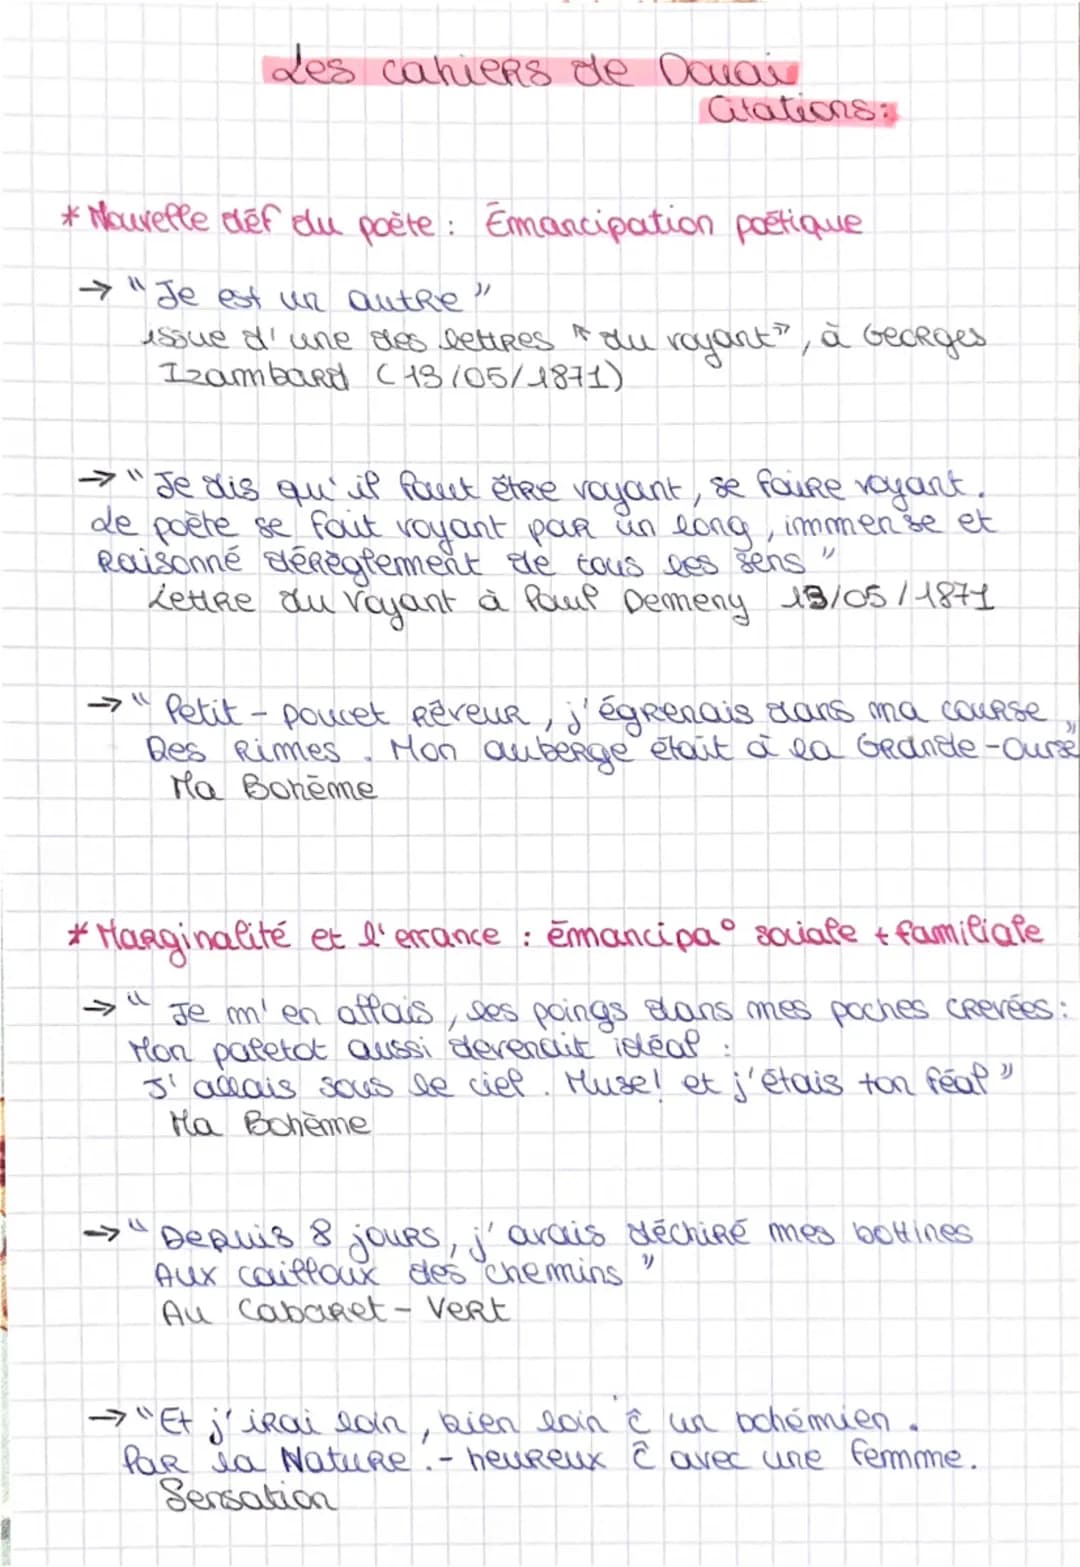 Les cahiers de Douai
Citations:
* Nouvelle déf du poète : Émancipation poétique
→ "Je est un autre"
issue d'une des lettres "du voyant", à Georges
Izambard (13/05/1871)
→ "Je dis qu'il faut être voyant, se faire voyant.
Le poète se fait voyant par un long, immense et
Raisonné dérèglement de tous les sens"
Lettre du Voyant à Paul Demeny 13/05/1871
→ "Petit-poucet Rêveur, j'égrenais dans ma course
Des Rimes. Mon auberge était à la Grande-Ourse"
Ma Bohème
* Marginalité et l'errance : émancipa° sociale + familiale
→ "Je m'en allais, les poings dans mes poches crevées :
Mon paletot aussi devenait idéal :
J'allais sous le ciel. Muse! et j'étais ton féal"
Ma Bohème
→ "Depuis 8 jours, j'avais déchiré mes bottines
Aux cailloux des chemins"
Au Cabaret-Vert
→ "Et j'irai loin, bien loin c̄ un bohémien.
Par la Nature.- heureux c̄ avec une femme.
Sensation